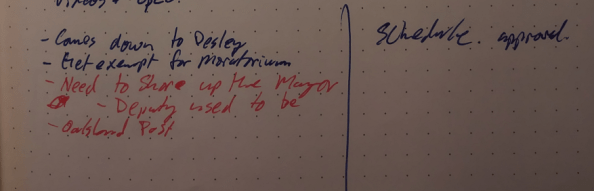 - Comes down to Desley
- Get exempt for moratorium
- Need to Shore up the Mayor
- Deputy used to be
- Oakland Post
Schedule. approval.